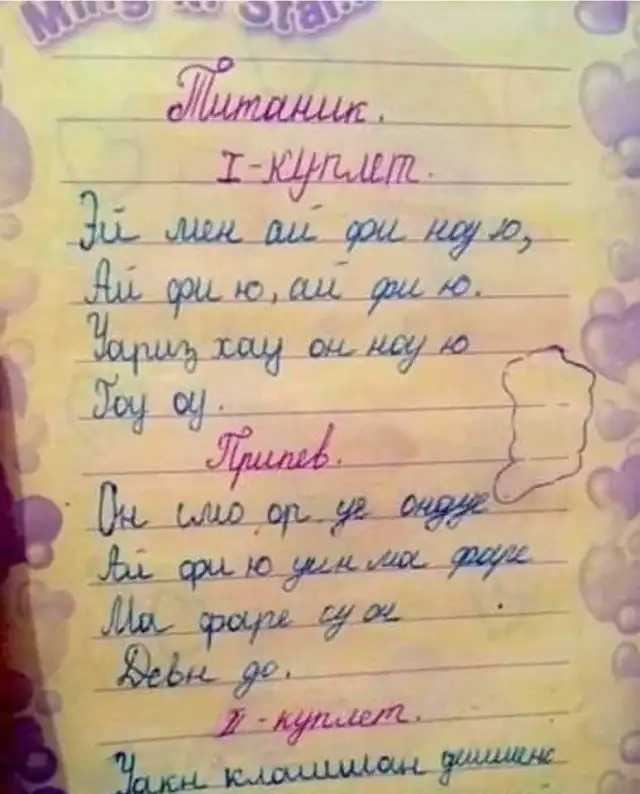 Титаник.
I-куплет.
Эй мен ай фи ноу ю,
Ай фи ю, ай фи ю.
Уариз хау он ноу ю
Гоу оу.
Припев.
Он смо ор уе ондуе
Ай фи ю уин ма фаре
Ма фаре су он
Девн до.
II-куплет.
Уакн клашиан